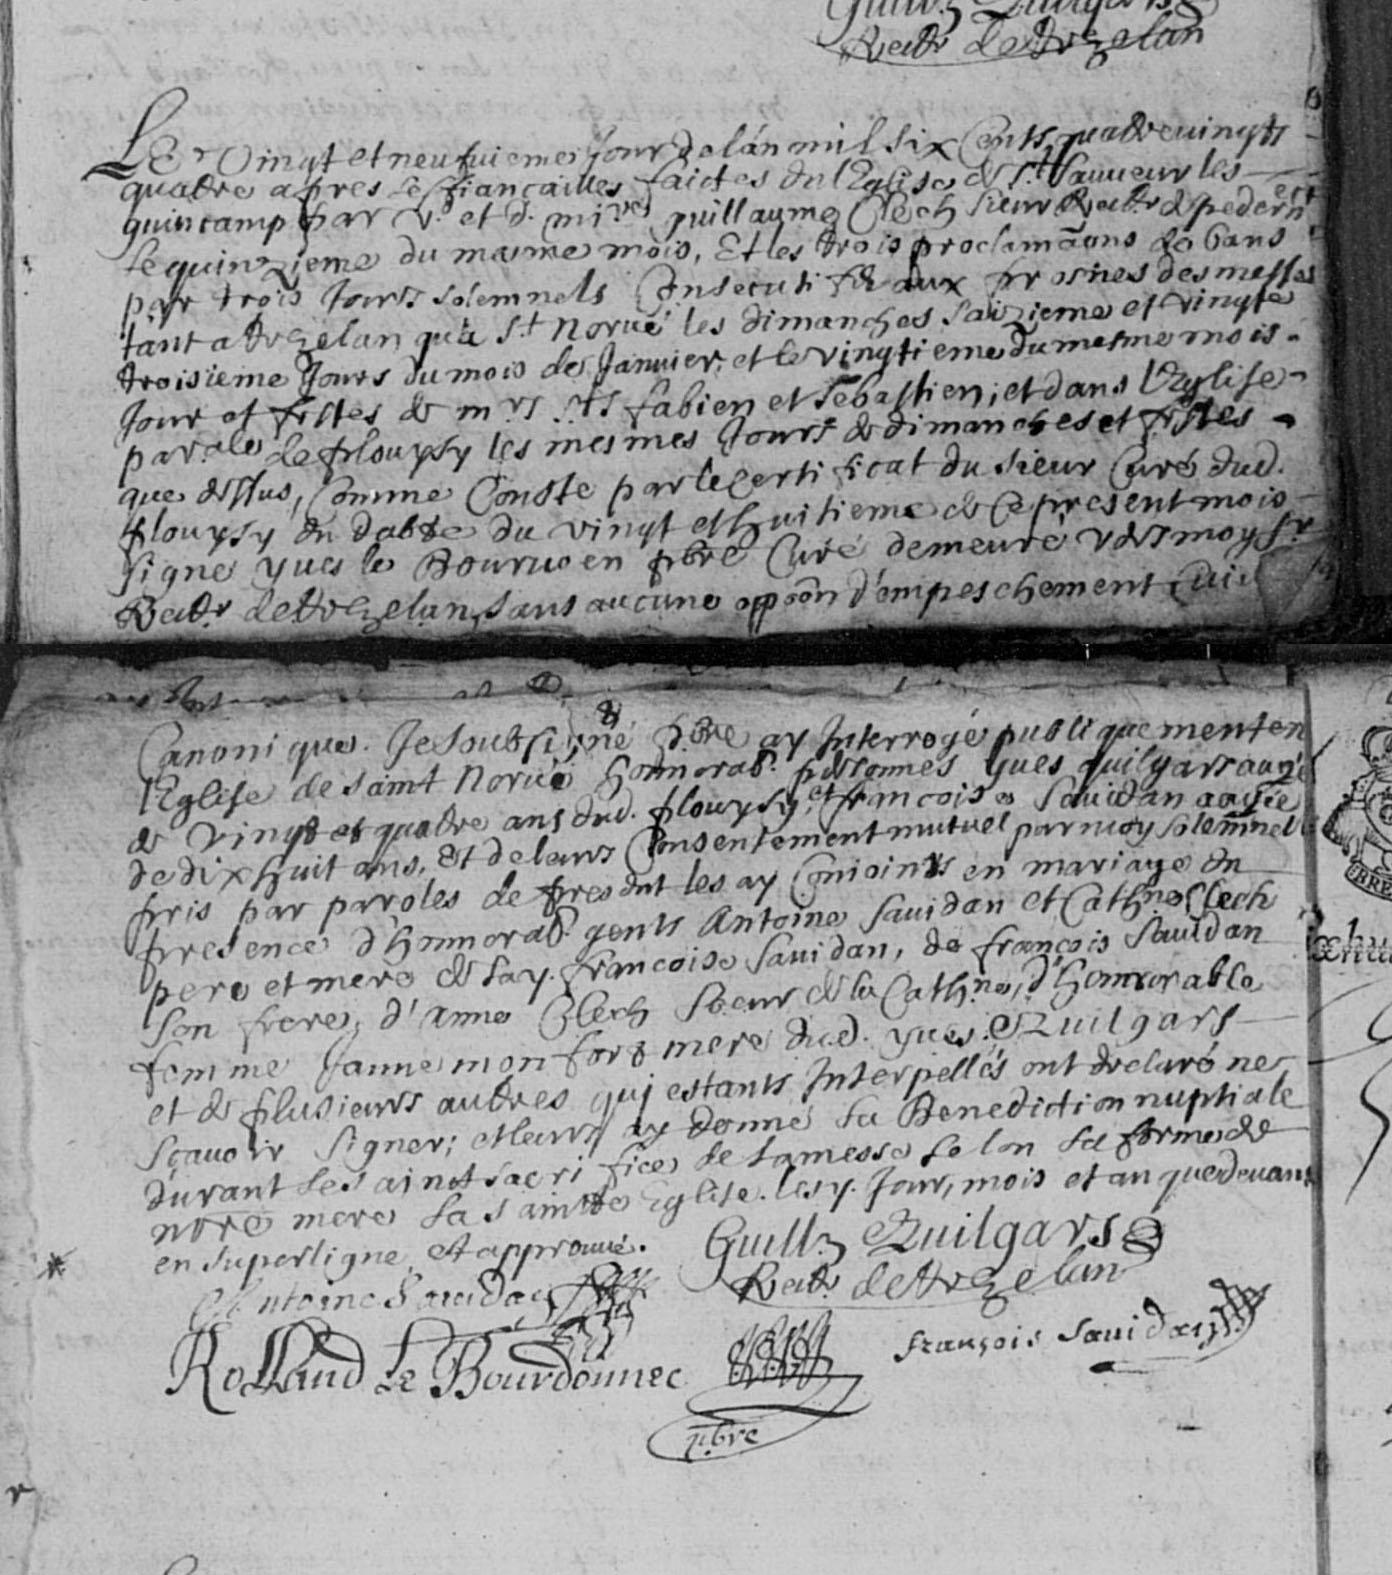 Guill. Quilgars
Rectr. de trezelan
Le vingt et neufuieme jour de lan mil six cents quatre vingts
quatre apres les fiançailles faictes en l'Eglise de St. Sauueur les
guincamp par v. et d. mire guillaume Clech sieur Rectr de pedernec
le quinzieme du mesme mois, Et les trois proclamãons de bans
par trois Jours solemnels Consecutifs aux prosnes des messes
tant a trezelan qu'a St norué les dimanches saizieme et vingte
troisieme Jours du mois de Januier, et le vingtieme du mesme mois
Jour et festes de mrs Sts fabien et Sebastien; et dans l'Eglise
par.ale de plouysy les mesmes Jours de dimanches et festes
que dessus, Comme Conste par le certificat du sieur Curé dud.
plouysy en dabte du vingt et huitieme de ce present mois
signe yues le Bouruoen pbre Curé demeuré vers moy sr
Rectr de trezelan, sans aucune oppõon d'empeschement
Canonique. Je soubsigné pbre ay Interrogé publiquement en
l'Eglise de saint norué honnorab. personnes yues quilgars augé
de vingt et quatre ans dud. plouysy, et francoise sauidan augée
de dix huit ans, Et de leurs Consentement mutuel par moy solemnell
pris par paroles de present les ay Conioints en mariage en
presence d'honnorab. gents Antoine sauidan et Cathne Clech
pere et mere de lay. francoise sauidan, de françois sauidan
son frere, d'Anne Clech soeur de la Cathne, d'honnorable
femme Janne monfort mere dud. yues Quilgars
et de plusieurs autres qui estants Interpellés ont declaré ne
sçauoir signer; et leurs ay donné la Benediction nuptiale
durant le sainct sacrifice de la messe selon la forme de
nõre mere la sainte Eglise. lesy. Jour, mois et an que deuant
en superligne et approuué. Guill. Quilgars
Rectr. de trezelan
Antoine Sauidan
françois Sauidan
Rolland Le Bourdonnec
pbre